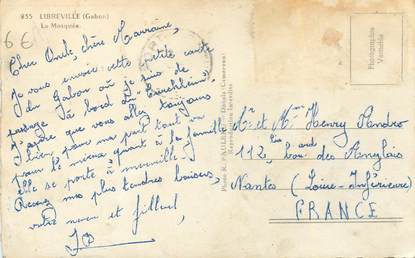 855 LIBREVILLE (Gabon)
La Mosquée.
6€
Cher Oncle, chère Marraine,
Je vous envoie cette petite carte
du Gabon où je suis de
passage à bord du
J'espère que vous allez toujours
bien, pour ma part tout va
pour le mieux, quant à la famille
elle se porte à merveille.
Recevez mes plus tendres baisers,
votre neveu et filleul,
Photographie
Véritable
Mr et Mme Henry
112, bis des Anglais
Nantes (Loire-Inférieure)
FRANCE